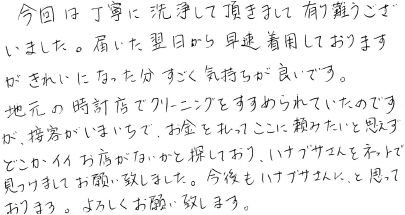 今回は丁寧に洗浄して頂きまして有り難うござ
いました。届いた翌日から早速着用しております
がきれいになった分すごく気持ちが良いです。
地元の時計店でクリーニングをすすめられていたのです
が、接客がいまいちで、お金を払ってここに頼みたいと思えず
どこかイイお店がないかと探しており、ハナブサさんをネットで
見つけましてお願い致しました。今後もハナブサさんに、と思って
おります。よろしくお願い致します。